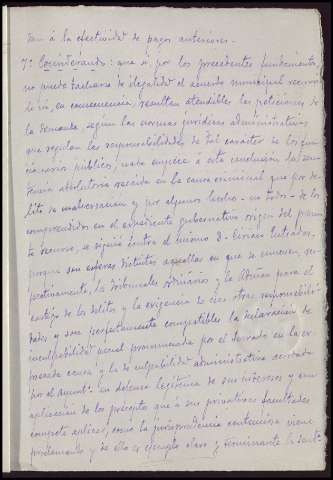 dan á la efectividad de pagos anteriores.-
7º Considerando: que si, por los precedentes fundamentos,
no puede tacharse de ilegalidad el acuerdo municipal recurri-
do ni, en consecuencia, resultan atendibles las peticiones de
la demanda, según las normas jurídicas administrativas
que regulan las responsabilidades de tal carácter de los fun-
cionarios públicos, nada empiece á esta conclusión la sen-
tencia absolutoria recaida en la causa criminal que por de-
lito de malversación y por algunos hechos - no todos - de los
comprendidos en el expediente gubernativo origen del presen-
te recurso, se siguió contra el mismo D. Entrados,
porque son esferas distintas aquellas en que se mueven, res-
pectivamente, los Tribunales ordinarios y la Admón para el
castigo de los delitos y la exigencia de otras responsabili-
dades y son perfectamente compatibles la declaración de
inculpabilidad penal pronunciada por el Jurado en la ex-
presada causa y la de culpabilidad administrativa acordada
por el Ayuntº en defensa legítima de sus intereses y en
aplicación de los preceptos que á sus privativas facultades
compete aplicar, como la jurisprudencia contenciosa viene
proclamando y de ello es ejemplo claro y terminante la sent-